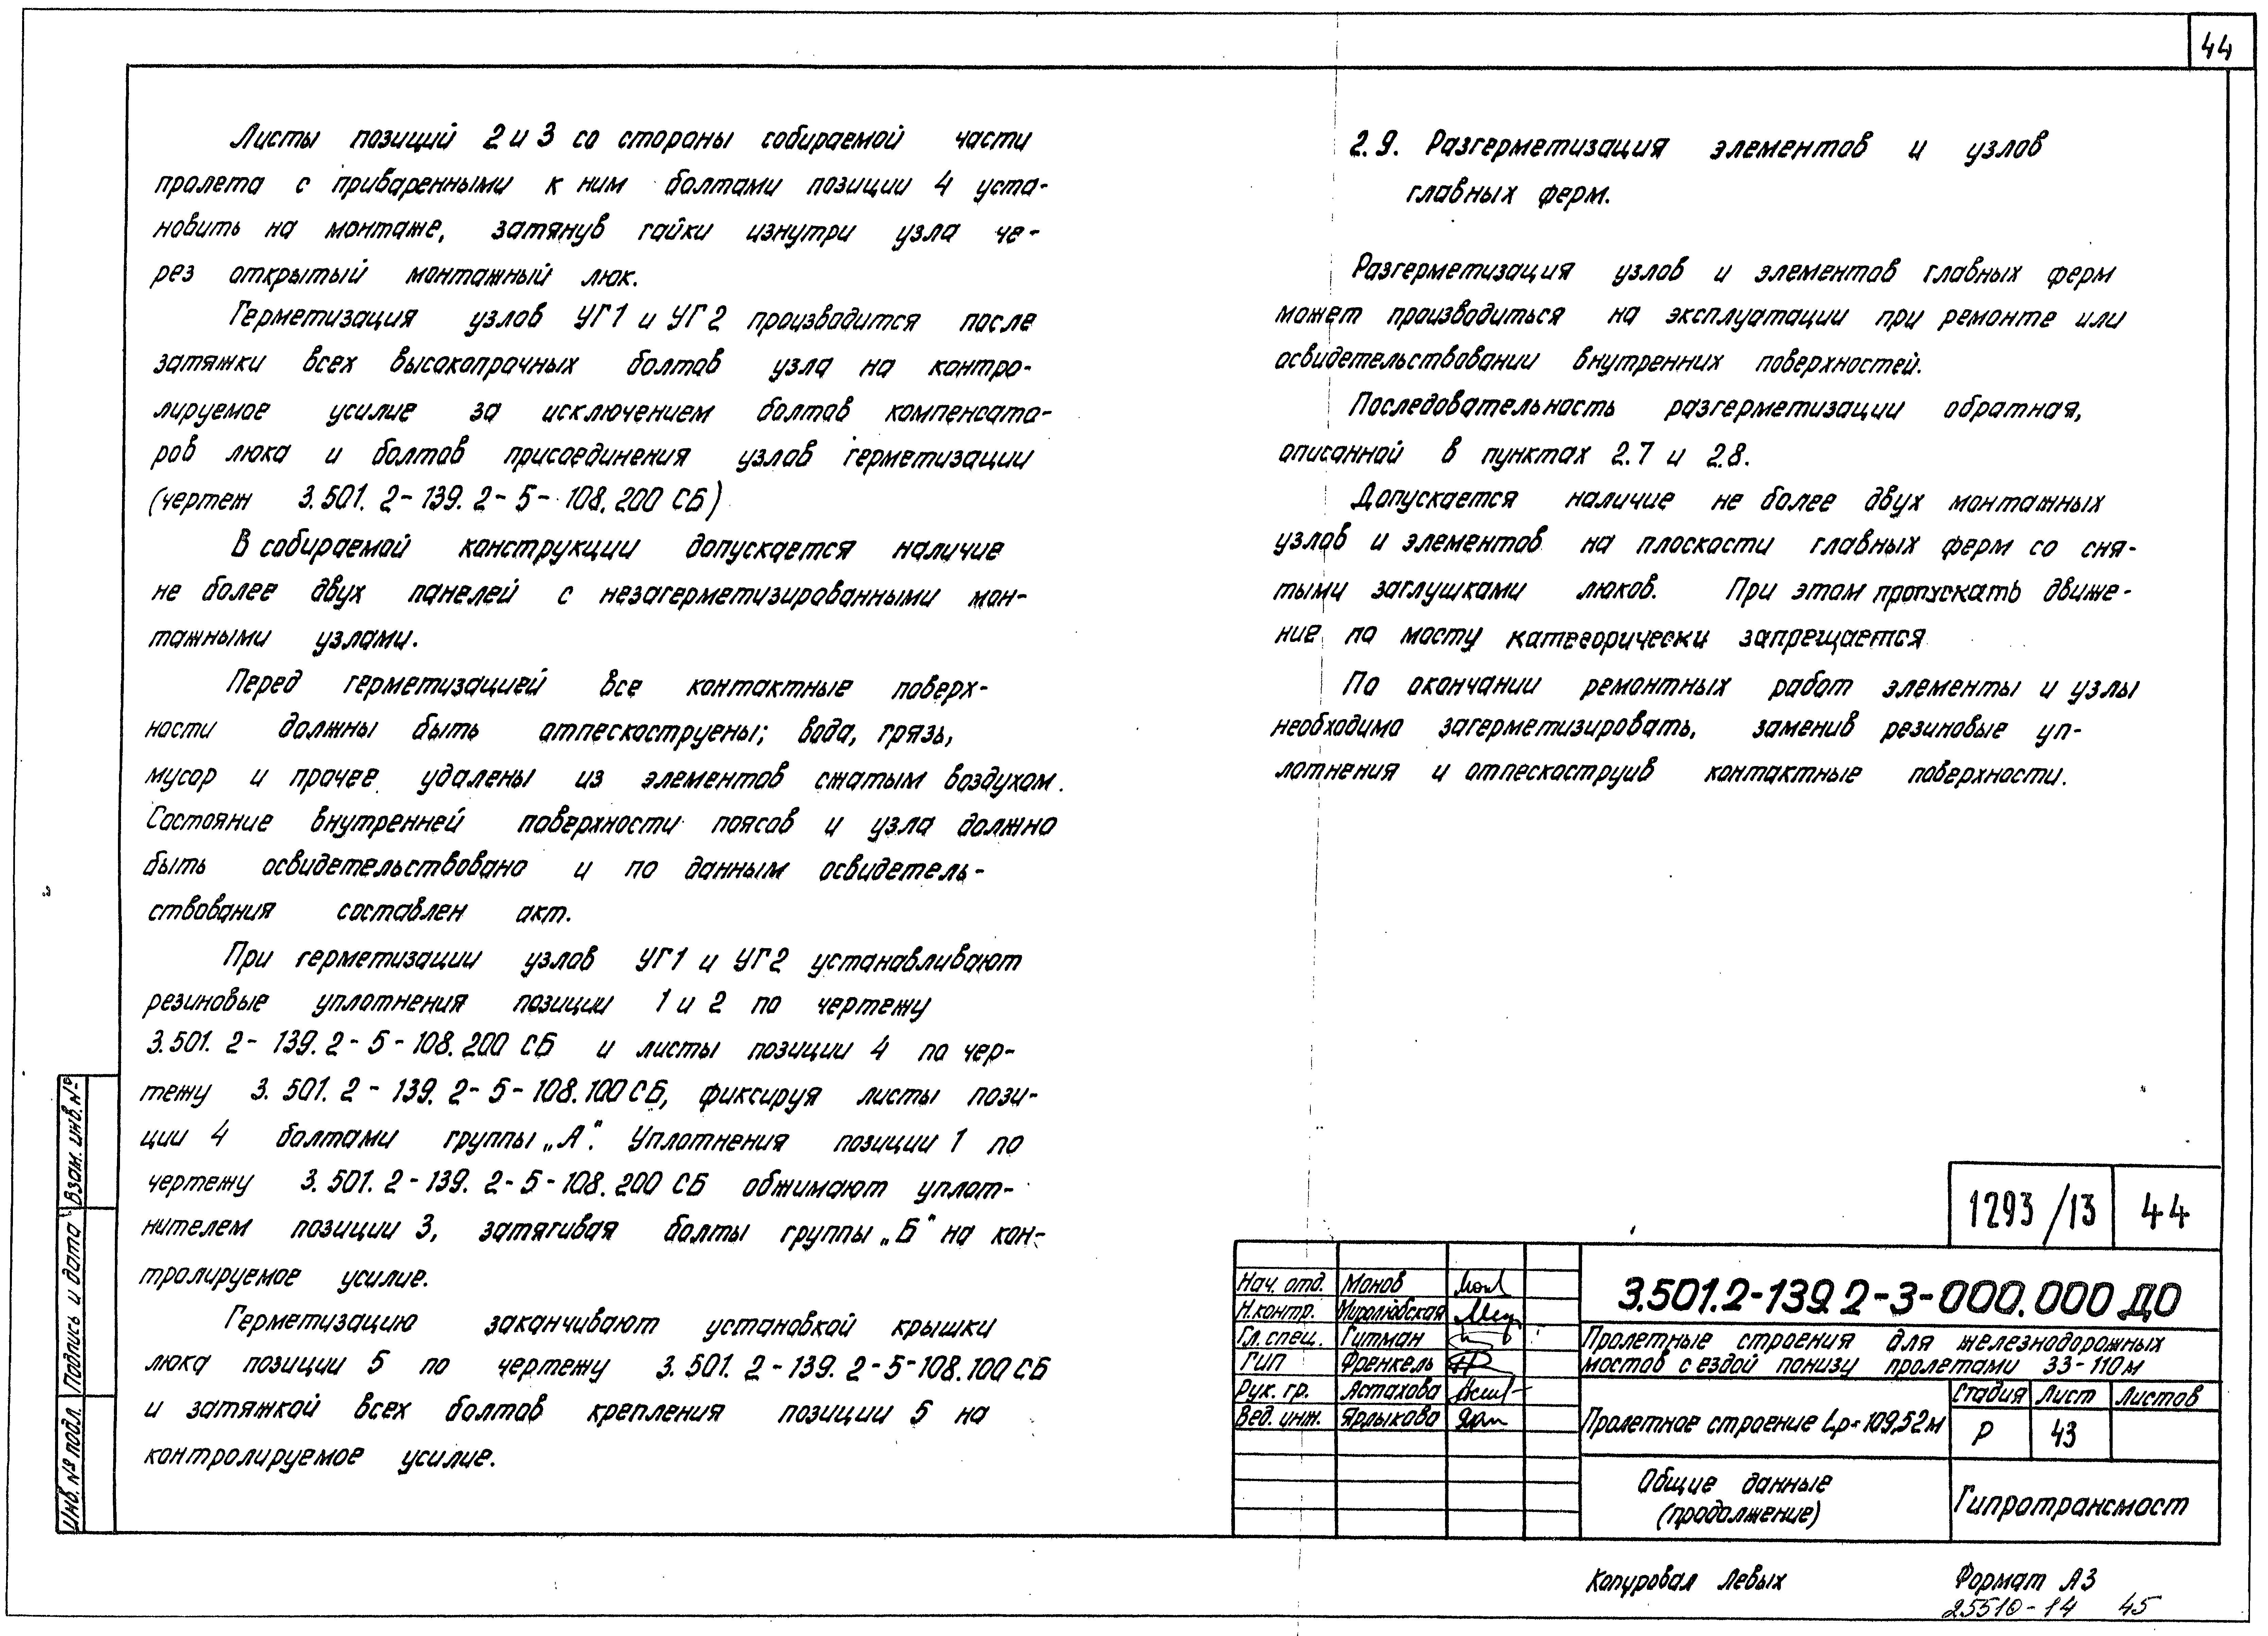 44
Листы позиций 2 и 3 со стороны собираемой части
пролета с приваренными к ним болтами позиции 4 уста-
новить на монтаже, затянув гайки изнутри узла че-
рез открытый монтажный люк.
Герметизация узлов УГ1 и УГ2 производится после
затяжки всех высокопрочных болтов узла на контро-
лируемое усилие за исключением болтов компенсато-
ров люка и болтов присоединения узлов герметизации
(чертеж 3.501.2-139.2-5-108.200 СБ)
В собираемой конструкции допускается наличие
не более двух панелей с незагерметизированными мон-
тажными узлами.
Перед герметизацией все контактные поверх-
ности должны быть отпескоструены; вода, грязь,
мусор и прочее удалены из элементов сжатым воздухом.
Состояние внутренней поверхности поясов и узла должно
быть освидетельствовано и по данным освидетель-
ствования составлен акт.
При герметизации узлов УГ1 и УГ2 устанавливают
резиновые уплотнения позиции 1 и 2 по чертежу
3.501.2-139.2-5-108.200 СБ и листы позиции 4 по чер-
тежу 3.501.2-139.2-5-108.100 СБ, фиксируя листы пози-
ции 4 болтами группы „А". Уплотнения позиции 1 по
чертежу 3.501.2-139.2-5-108.200 СБ обжимают уплот-
нителем позиции 3, затягивая болты группы „Б" на кон-
тролируемое усилие.
Герметизацию заканчивают установкой крышки
люка позиции 5 по чертежу 3.501.2-139.2-5-108.100 СБ
и затяжкой всех болтов крепления позиции 5 на
контролируемое усилие.
2.9. Разгерметизация элементов и узлов
главных ферм.
Разгерметизация узлов и элементов главных ферм
может производиться на эксплуатации при ремонте или
освидетельствовании внутренних поверхностей.
Последовательность разгерметизации обратная,
описанной в пунктах 2.7 и 2.8.
Допускается наличие не более двух монтажных
узлов и элементов на плоскости главных ферм со сня-
тыми заглушками люков. При этом пропускать движе-
ние по мосту категорически запрещается
По окончании ремонтных работ элементы и узлы
необходимо загерметизировать, заменив резиновые уп-
лотнения и отпескоструив контактные поверхности.
Инв. № подл. Подпись и дата Взам. инв. №
1293/13 44
3.501.2-139.2-3-000.000 ДО
Нач. отд. Монов
Н.контр. Миролюбская
Гл. спец. Гитман
ГИП Френкель
Рук. гр. Астахова
Вед. инж. Ярлыкова
Пролетные строения для железнодорожных
мостов с ездой понизу пролетами 33-110 м
Пролетное строение Lр=109,52м
Стадия Лист Листов
Р 43
Общие данные
(продолжение)
Гипротрансмост
Копировал Левых Формат А3
25510-14 45